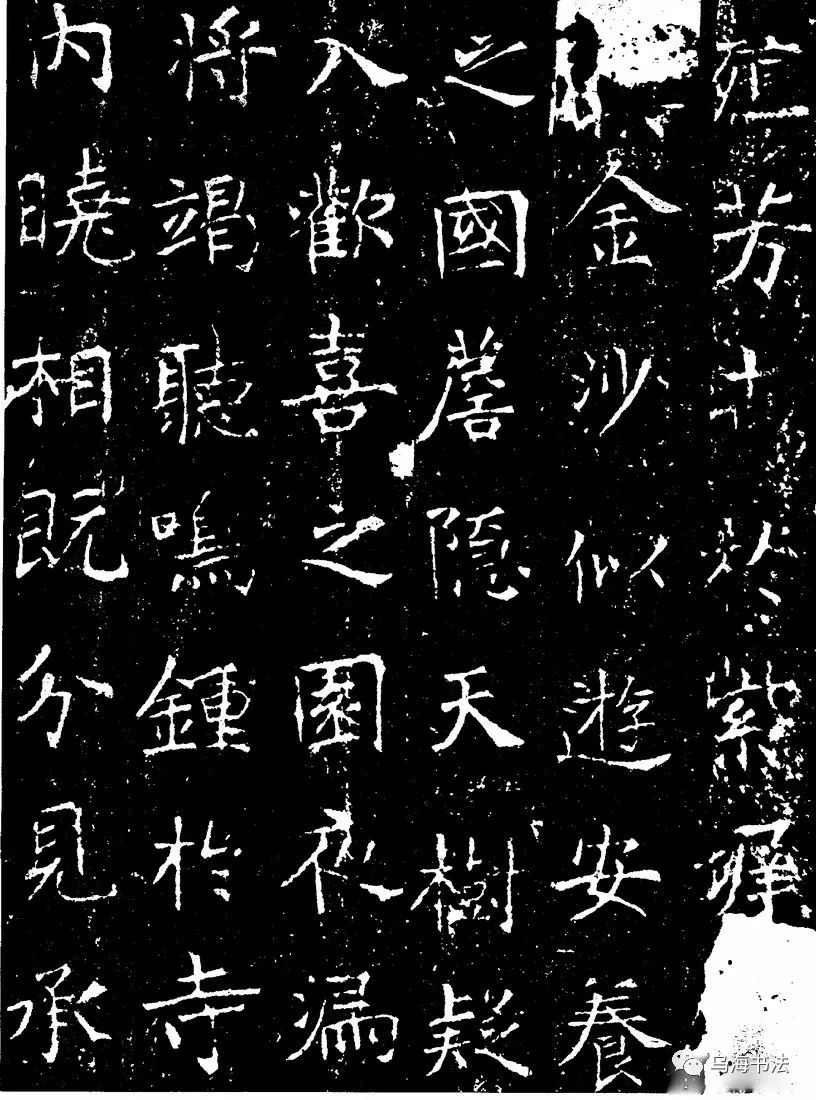 殖芳於紫墀
金沙似遊安養
之國簷隱天樹疑
入歡喜之園夜漏
將竭聽鳴鍾於寺
內曉相既分見承
乌海书法